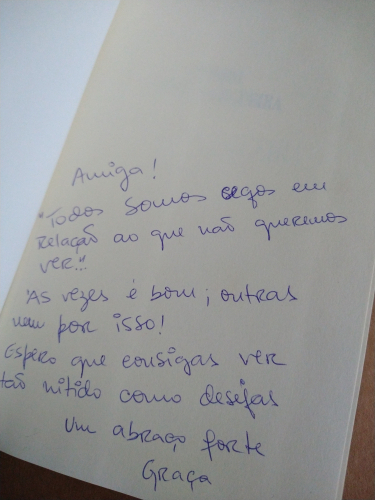 Amiga!
"Todos somos cegos em
relação ao que não queremos
ver..."
Às vezes é bom; outras
nem por isso!
Espero que consigas ver
tão nítido como desejas
Um abraço forte
Graça